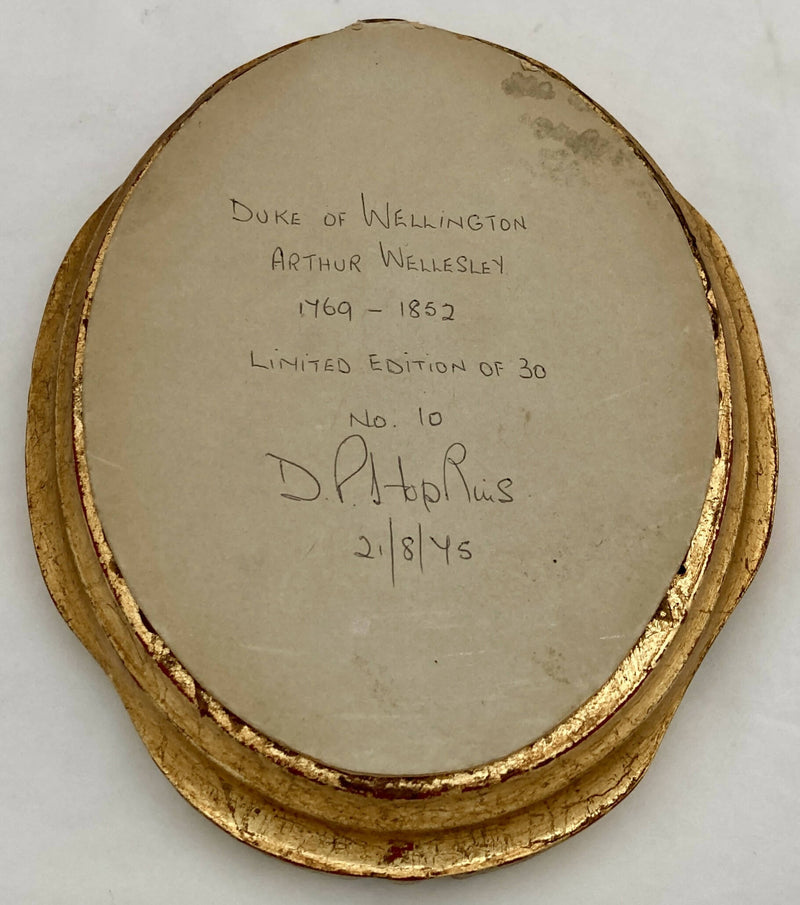 DUKE OF WELLINGTON
ARTHUR WELLESLEY
1769 - 1852
LIMITED EDITION OF 30
NO. 10
D.P. Hopkins
21/8/75